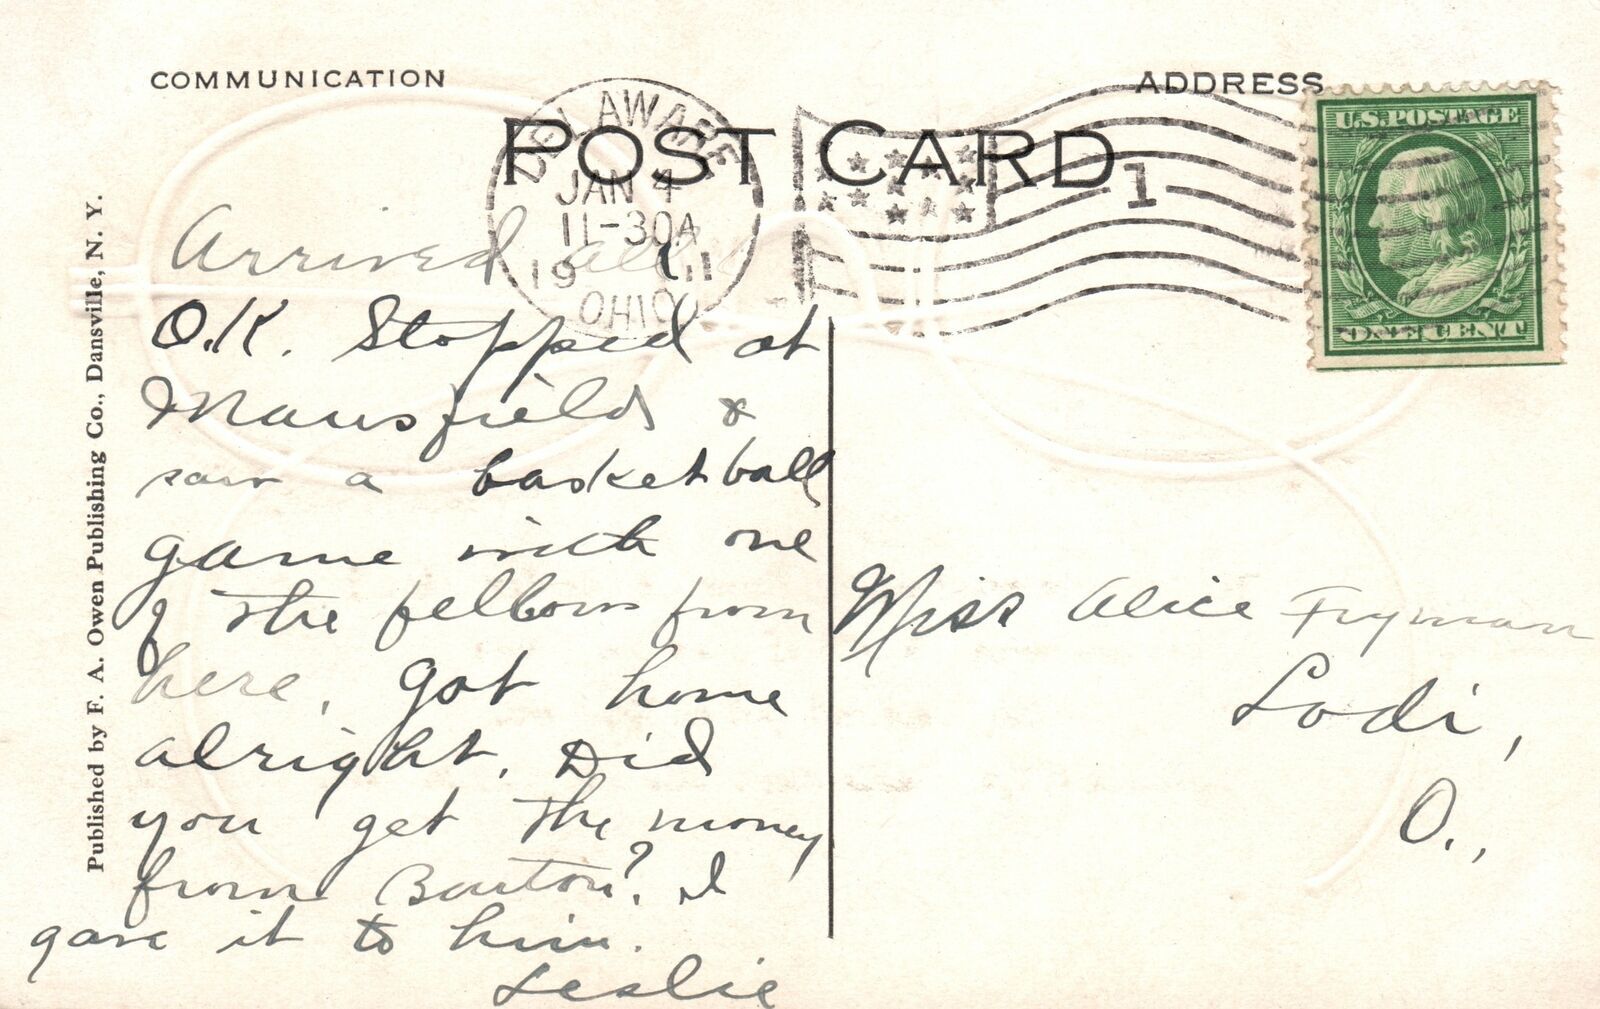 COMMUNICATION
ADDRESS
POST CARD
DELAWARE
JAN 4
11-30A
19 11
OHIO
1
U.S. POSTAGE
ONE CENT
Published by F. A. Owen Publishing Co., Dansville, N. Y.
Arrived all
O.K. Stopped at
Mansfield &
saw a basket ball
game with one
of the fellows from
here, got home
alright. Did
you get the money
from Barton? I
gave it to him.
Leslie
Miss Alice Fryman
Lodi,
O.,